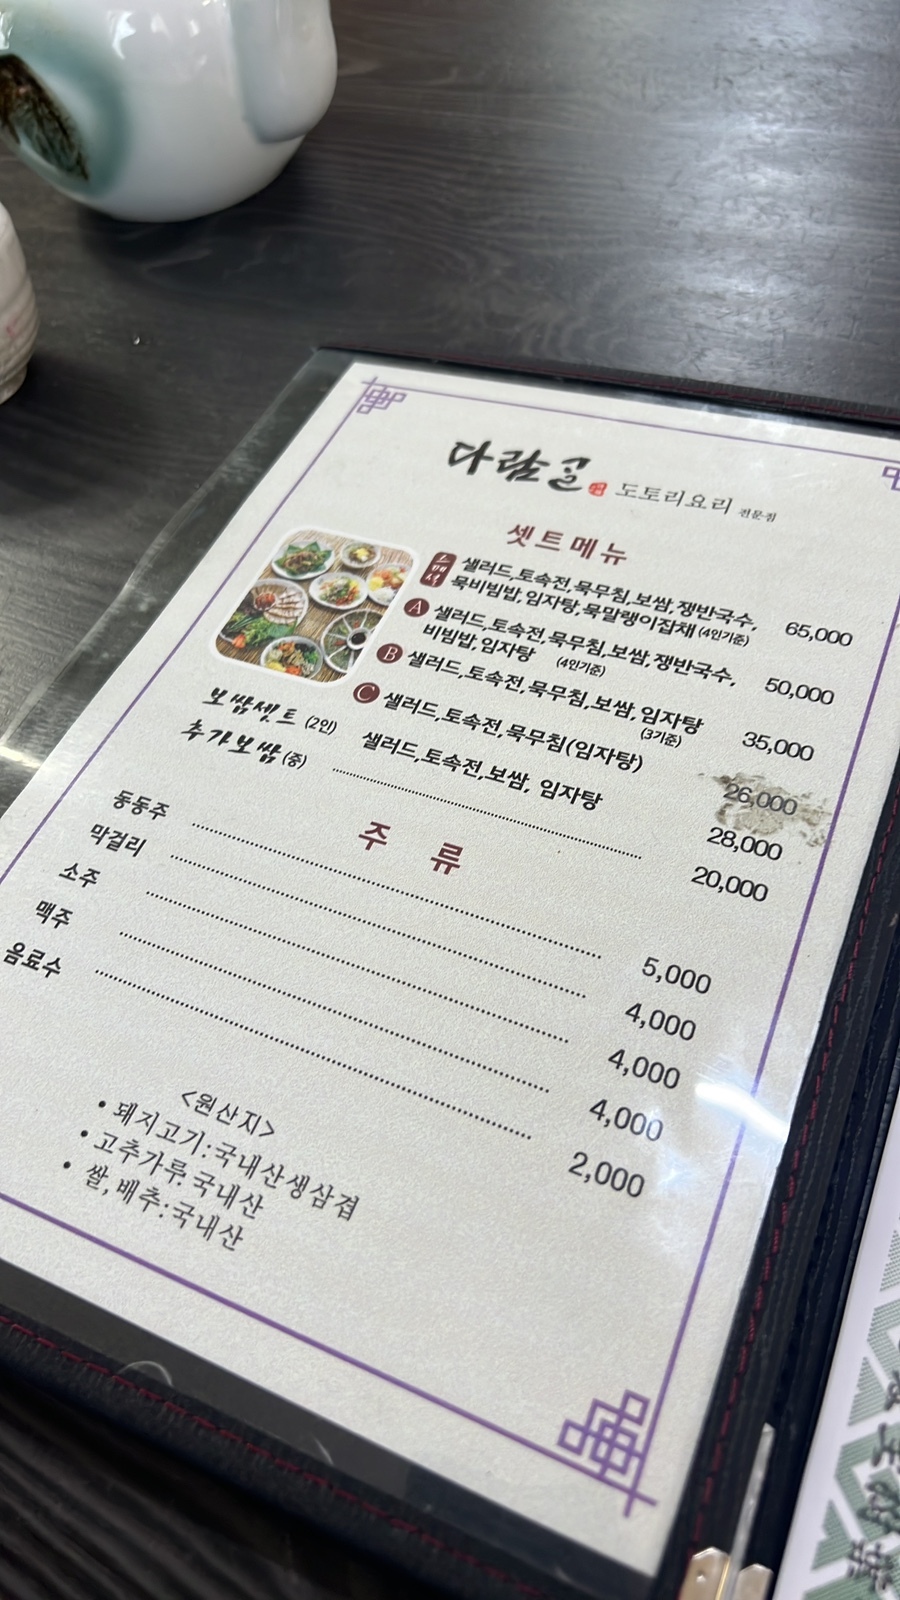 다람골 도토리요리 전문점
셋트메뉴
스페셜 샐러드,토속전,묵무침,보쌈,쟁반국수,
묵비빔밥,임자탕,묵말랭이잡채 (4인기준) 65,000
A 샐러드,토속전,묵무침,보쌈,쟁반국수,
비빔밥,임자탕 (4인기준) 50,000
B 샐러드,토속전,묵무침,보쌈,임자탕
(3기준) 35,000
C 샐러드,토속전,묵무침(임자탕) 26,000
보쌈셋트 (2인) 샐러드,토속전,보쌈, 임자탕 28,000
추가보쌈 (중) 20,000
주 류
동동주 5,000
막걸리 4,000
소주 4,000
맥주 4,000
음료수 2,000
<원산지>
• 돼지고기:국내산생삼겹
• 고추가루:국내산
• 쌀,배추:국내산